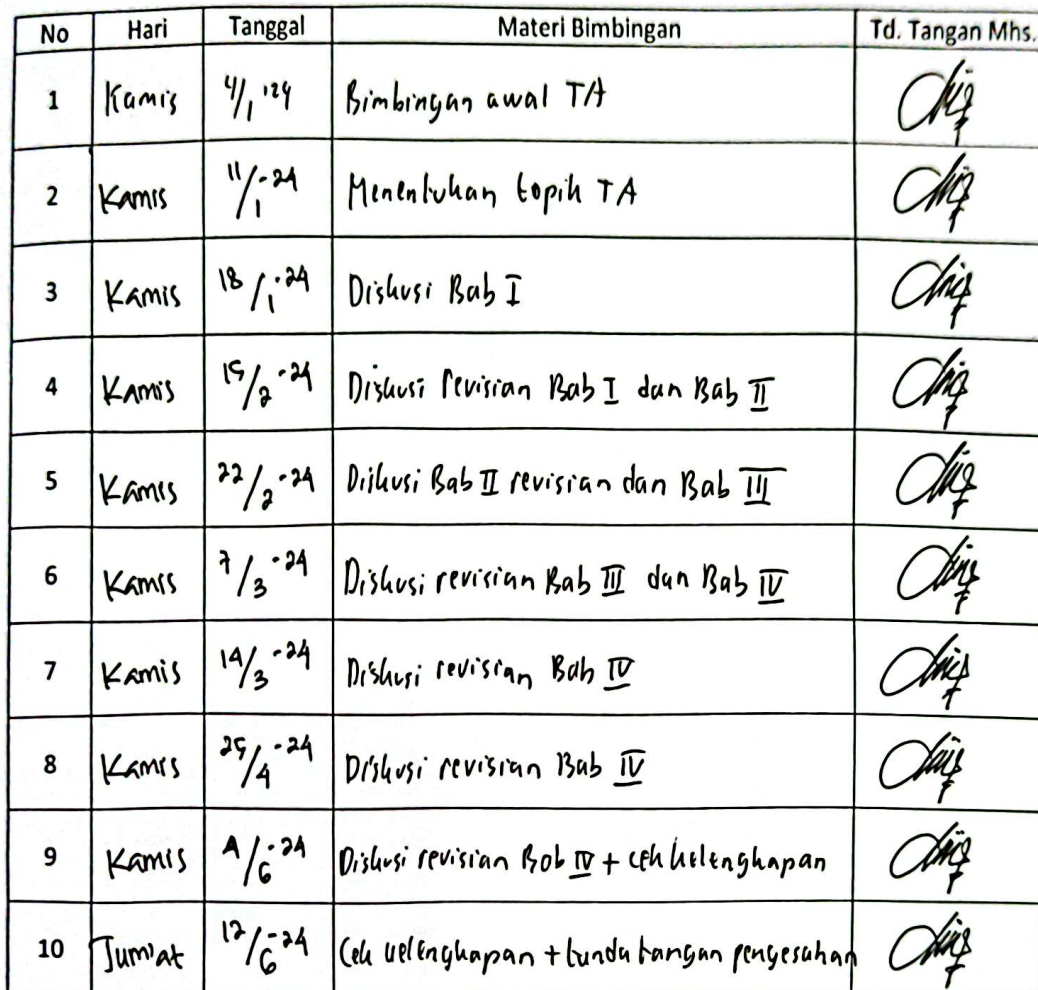 No Hari Tanggal Materi Bimbingan Td. Tangan Mhs.
1 Kamis 4/1 '24 Bimbingan awal TA
2 Kamis 11/1-24 Menentukan topik TA
3 Kamis 18/1-24 Diskusi Bab I
4 Kamis 15/2-24 Diskusi revisian Bab I dan Bab II
5 Kamis 22/2-24 Diskusi Bab II revisian dan Bab III
6 Kamis 7/3-24 Diskusi revisian Bab III dan Bab IV
7 Kamis 14/3-24 Diskusi revisian Bab IV
8 Kamis 25/4-24 Diskusi revisian Bab IV
9 Kamis 4/6-24 Diskusi revisian Bab IV + cek kelengkapan
10 Jum'at 12/6-24 Cek kelengkapan + tanda tangan pengesahan